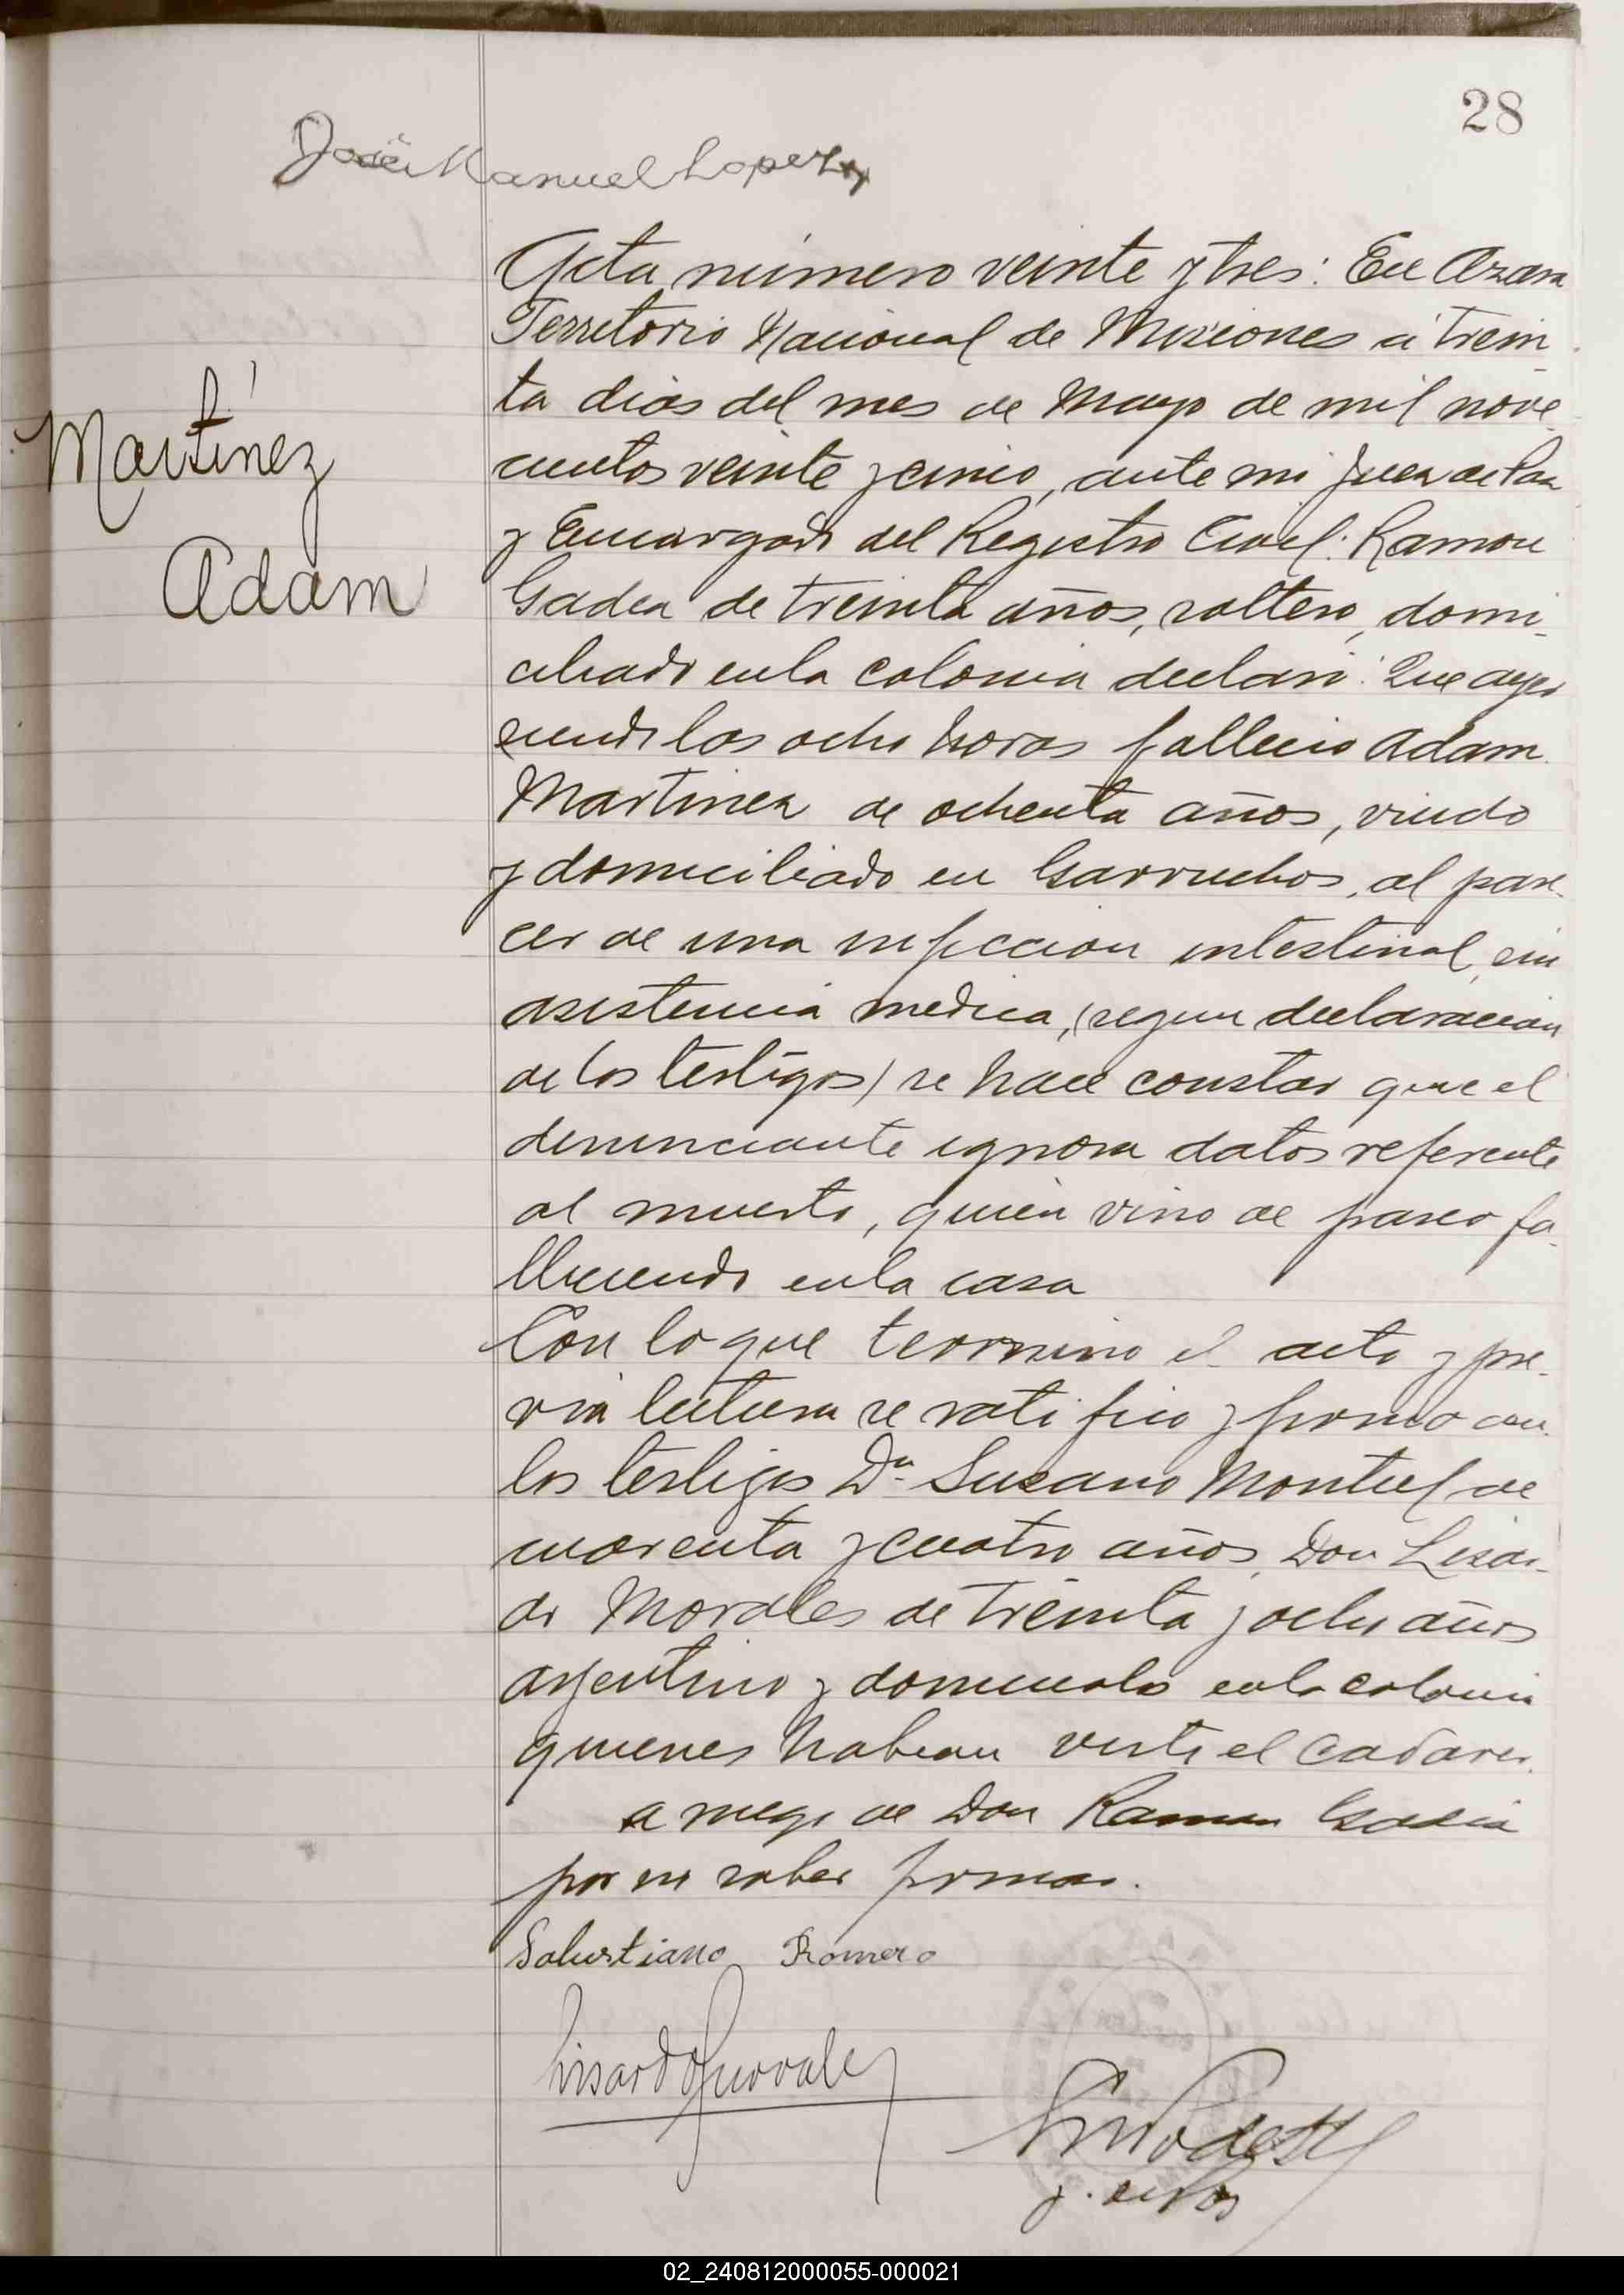 28
José Manuel Lopez
Acta número veinte y tres: En Azara
Territorio Nacional de Misiones a trein
ta dias del mes de Mayo de mil nove
cientos veinte y cinco, ante mi Juez de Paz
y Encargado del Registro Civil: Ramon
Gadea de treinta años, soltero, domi-
ciliado en la colonia declaró: Que ayer
siendo las ocho horas fallecio Adam
Martinez de ochenta años, viudo
y domiciliado en Garruchos, al pare-
cer de una infeccion intestinal, sin
asistencia medica, (segun declaracion
de los testigos) se hace constar que el
denunciante ignora datos referente
al muerto, quien vino de paseo fa-
lleciendo en la casa
Con lo que termino el acto y pre-
via lectura se ratifico y firmo con
los testigos Dn Susano Montiel de
cuarenta y cuatro años, Don Lisar-
do Morales de treinta y ocho años
argentino y domiciliado en la colonia
quienes habian visto el cadaver.
a ruego de Don Ramon Gadea
por no saber firmar.
Martínez
Adam
Salustiano Romero
Lisardo Morales
J. de Paz
02_240812000055-000021